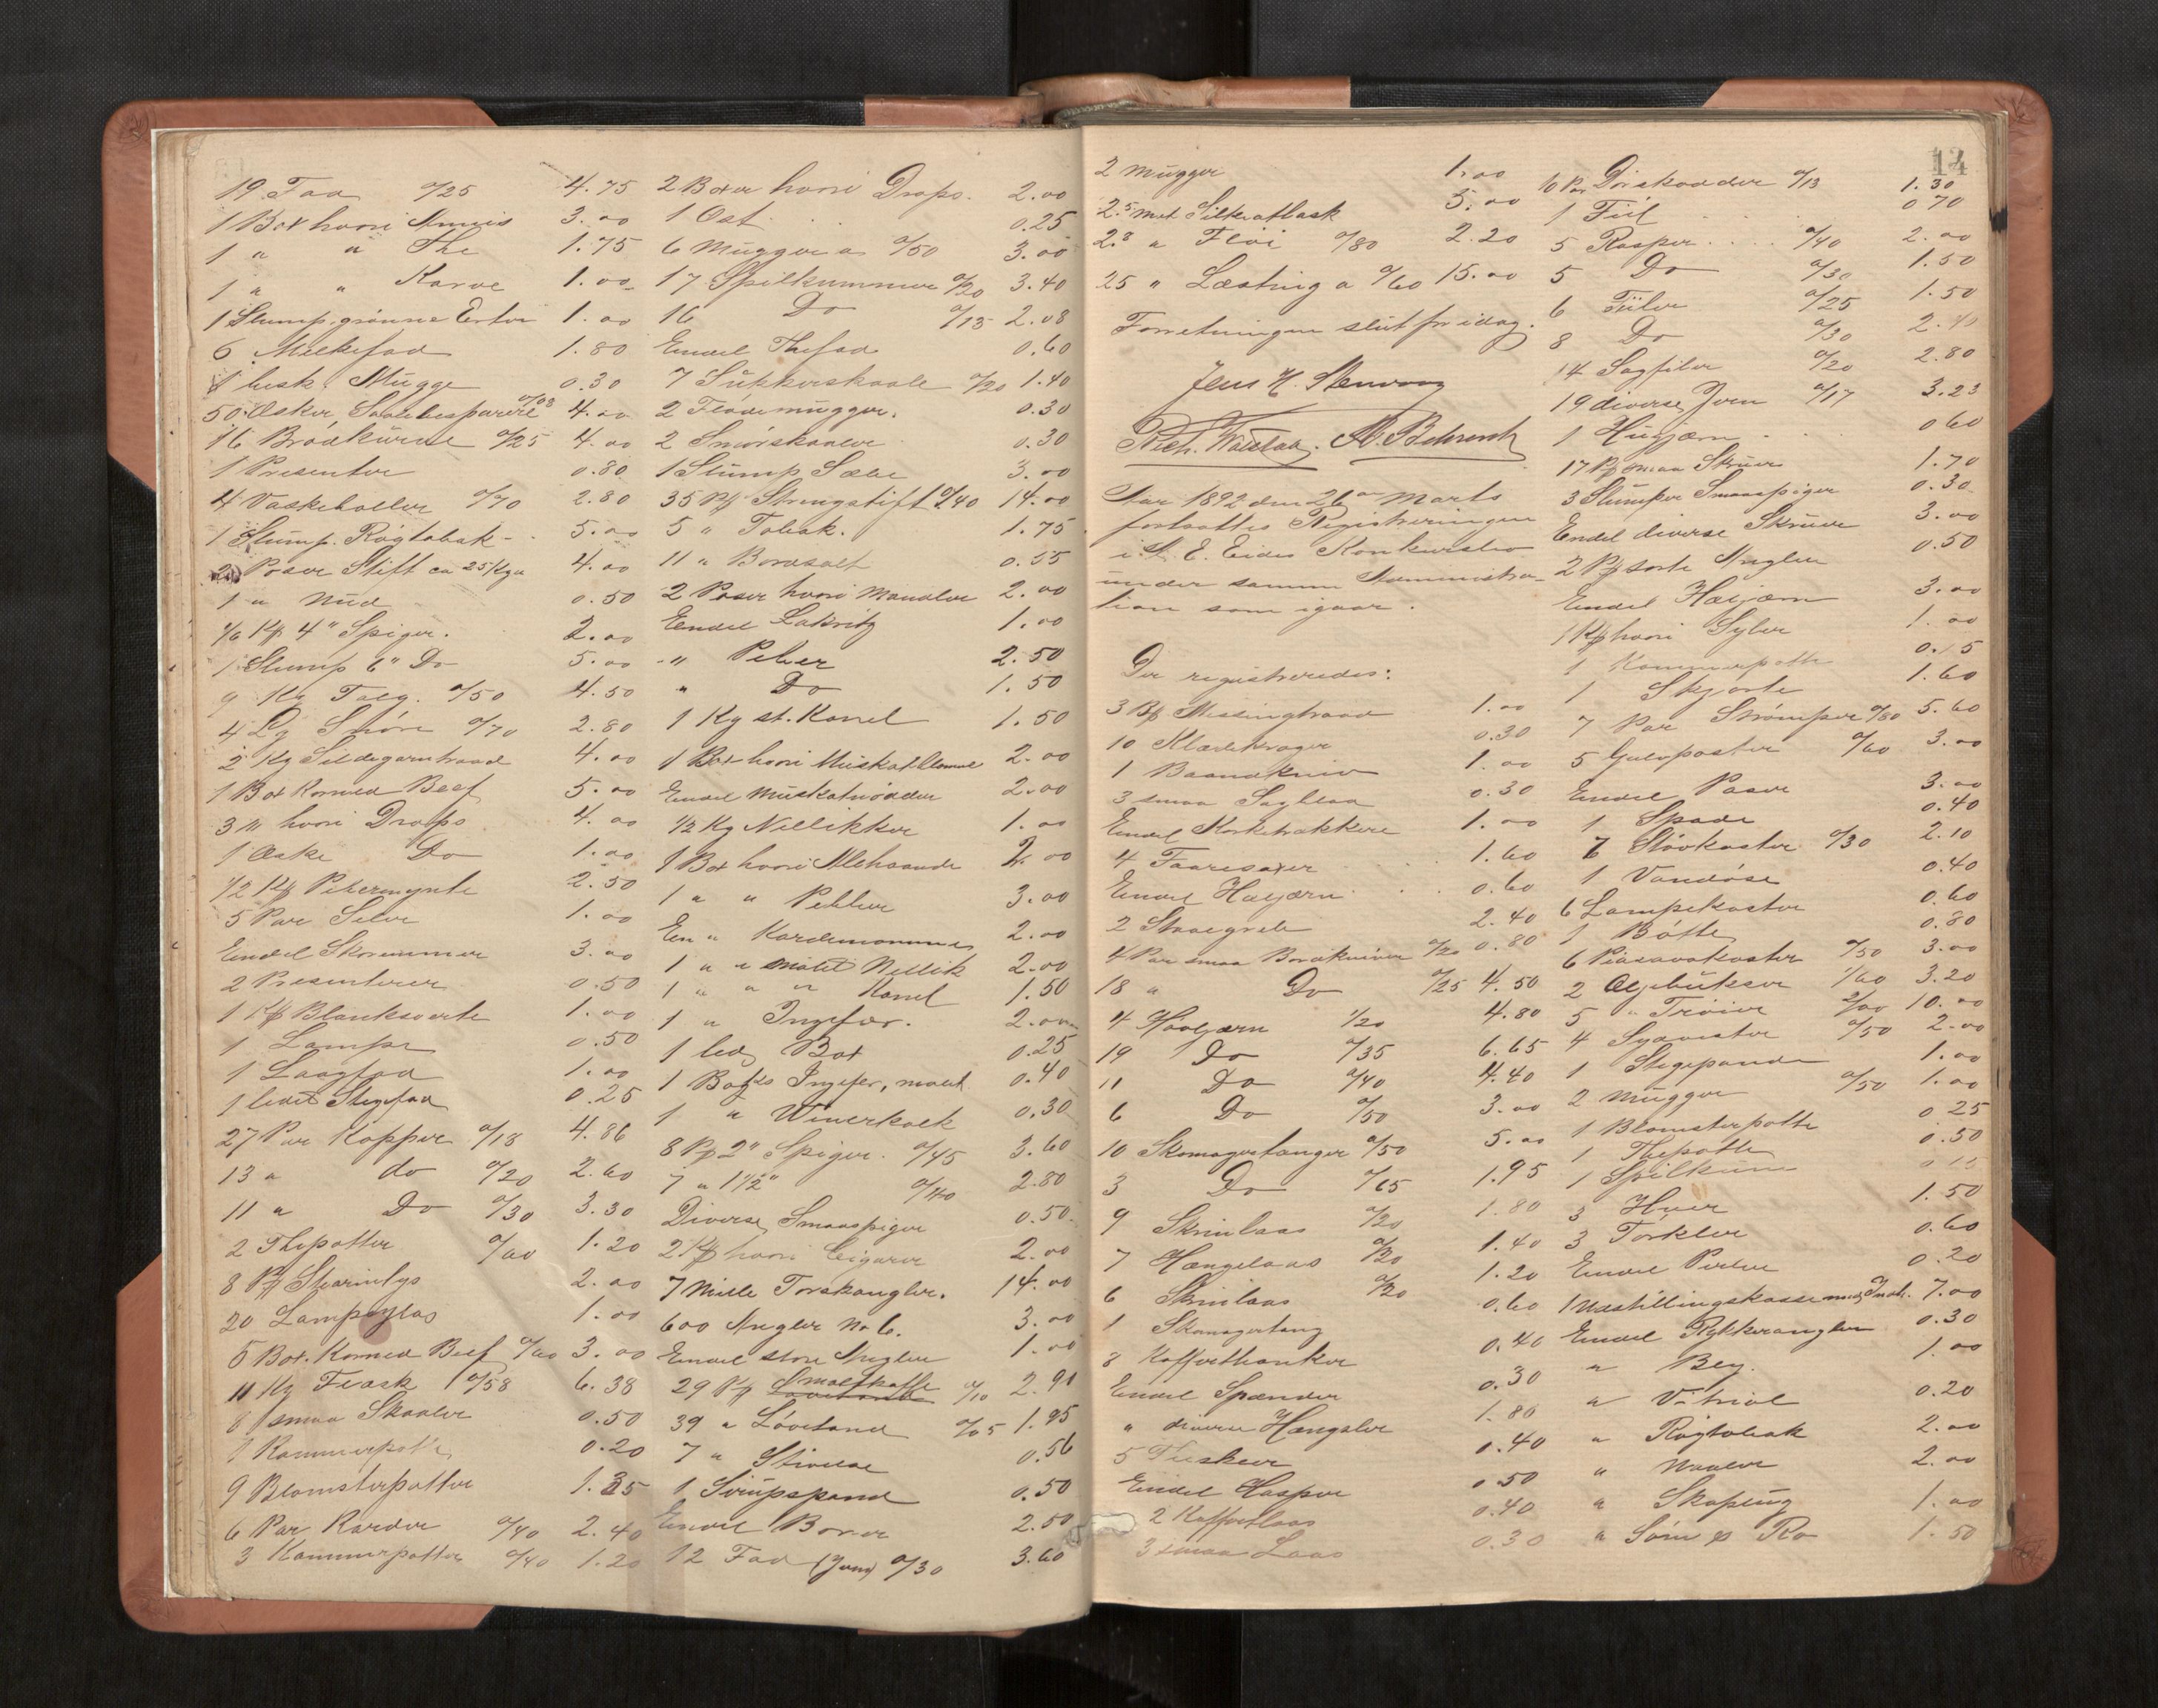 19 Fad a/25 4.75
1 Box hvori Annis 3.00
1 " " The 1.75
1 " " Karve 1.00
1 Slump grønne Erter 1.00
6 Melkefad 1.80
1 besk. Mugge 0.30
50 Æsker Saabesparere a/08 4.00
16 Brødkurve a/25 4.00
1 Presenter 0.80
4 Vaskeballer a/70 2.80
1 Slump Røgtobak 5.00
2 Poser Stift ca 25 Kga 4.00
1 " Nud 0.50
4" Spiger 2.00
1 Slump 6" Do 5.00
9 Kg Talg a/50 4.50
4 Snøre a/70 2.80
2 Kg Sildegarntraad 4.00
1 Box Korned Beef 5.00
3 " hvori Drops 4.00
1 Æske Do 1.00
1/2 Pk Pebermynte 2.50
5 Par Seler 1.00
Endel Skrammer 3.00
2 Presenterer 0.50
1 Pk Blanksverte 1.00
1 Lampe 0.50
1 Laagfad 1.00
1 ledet Stegefad 0.25
27 Par Kopper a/18 4.86
13 " do a/20 2.60
11 " Do a/30 3.30
2 Thepotter a/60 1.20
8 Pk Stearinlys 2.00
20 Lampeglas 1.00
5 Box. Korned Beef a/60 3.00
11 Kg Flæsk a/58 6.38
6 smaa Skaaler 0.50
1 Kammerpotte 0.20
9 Blomsterpotter 1.35
6 Par Karder a/40 2.40
3 Kammerpotter a/40 1.20
2 Boxer hvori Drops. 2.00
1 Ost 0.25
6 Mugger a a/50 3.00
17 Spilkummer a/20 3.40
16 Do a/13 2.08
Endel Thefad 0.60
7 Sukkerskaale a/20 1.40
2 Flødemugger. 0.30
2 Smørskaaler 0.30
1 Slump Sæbe 3.00
35 Pk Strengstift a/40 14.00
5 " Tobak. 1.75
11 " Bordsalt 0.55
2 Poser hvori Mandler 2.00
Endel Lakritz 1.00
" Peber 2.50
" Do 1.50
1 Kg st. Kanel 1.50
1 Box hvori Muskatblomme 2.00
Endel Muskatnødder 2.00
1/2 Kg Nellikker 1.00
1 Box hvori Allehaande 2.00
1 " " Pebber 3.00
En " Kardemomme 2.00
1 " " malet Nellik 2.00
1 " " " Kanel 1.50
1 " Ingefær. 2.00
1 led. Box 0.25
1 Box Ingefer, malt 0.40
1 " Winerkork 0.30
8 Pk 2" Spiger. a/45 3.60
7 " 1 1/2" a/40 2.80
Diverse Smaaspiger 0.50
2 Pk hvori Cigarer 2.00
7 Mille Torskangler. 14.00
600 Angler No 6. 3.00
Endel store Angler 1.00
29 Pk Smaltkaffe a/10 2.90
39 " Løvetand a/05 1.95
7 " Stivelse 0.56
1 Sirupspand 0.50
Endel Borer 2.50
12 Fad (Jern) a/30 3.60
14
2 Mugger 1.00
2.5 met Silkeatlask 5.00
" Fløi a/80 2.20
25 " Læstning a a/60 15.00
Forretningen slut for idag.
Jens H. Stenvaag
A. Behrent
Aar 1892 den 26de Marts
fortsattes Registreringen
i L. E. Eides Konkursbo
under samme Administra-
tion som igaar.
Der registreredes:
3 Bp Messingtraad 1.00
10 Klædekroger 0.30
1 Baandkniv 1.00
3 smaa Sagblaa 0.30
Endel Korketrækkere 1.00
4 Faaresaxer 1.60
Endel Hæljærn 0.60
2 Straegrele 2.40
4 Par smaa Bordkniver a/20 0.80
18 " Do a/25 4.50
4 Høvljærn 1/20 4.80
19 Do a/35 6.65
11 Do a/40 4.40
6 Do a/50 3.00
10 Skomagertanger a/50 5.00
3 Do a/65 1.95
9 Skrinlaas a/20 1.80
7 Hængelaas a/20 1.40
6 Skrinlaas a/20 1.20
1 Skomagertang 0.60
8 Kofferthanker 0.40
Endel Spænder 0.30
" diverse Hængsler 1.80
5 Fleskeer 0.40
Endel Hasper 0.50
2 Koffertlaas 0.40
3 smaa Laas 0.30
10 Par Dørskodder a/13 1.30
1 Fiil 0.70
5 Rasper a/40 2.00
5 Do a/30 1.50
6 Fiiler a/25 1.50
8 Do a/30 2.40
14 Sagfiler a/20 2.80
19 diverse Jern a/17 3.23
1 Hugjærn 0.60
17 Pk smaa Skruer 1.70
3 Slumper Smaaspiger 0.30
Endel diverse Skruer 3.00
2 Pk sorte Angler 0.50
Endel Hæljærn 3.00
1 Pk hvori Syler 1.00
1 Kammerpotte
1 Skjorte 1.60
7 Par Strømper a/80 5.60
5 Gulvposter a/60 3.00
Endel Poser 3.00
1 Spade 0.40
7 Støvkoster a/30 2.10
1 Vandøse 0.40
6 Lampekoster 0.60
1 Bøtte 0.80
6 Piasavakoster a/50 3.00
2 Oljebukser 1/60 3.20
5 " Trøier 2/00 10.00
4 Sydvester a/50 2.00
1 Stegepande 1.00
2 Mugger a/50 1.00
1 Blomsterpotte 0.25
1 Thepotte 0.50
1 Spilkum
3 Huer 1.50
3 Tørkler 0.60
Endel Perler 0.20
1 Udstillingskasse med Indh. 7.00
Endel Pykkerangler 0.30
" Beg. 1.00
" Vitriol 0.20
" Røgtobak 2.00
" Naaler 2.00
" Skoplug 1.00
" Søm & Ro 1.50